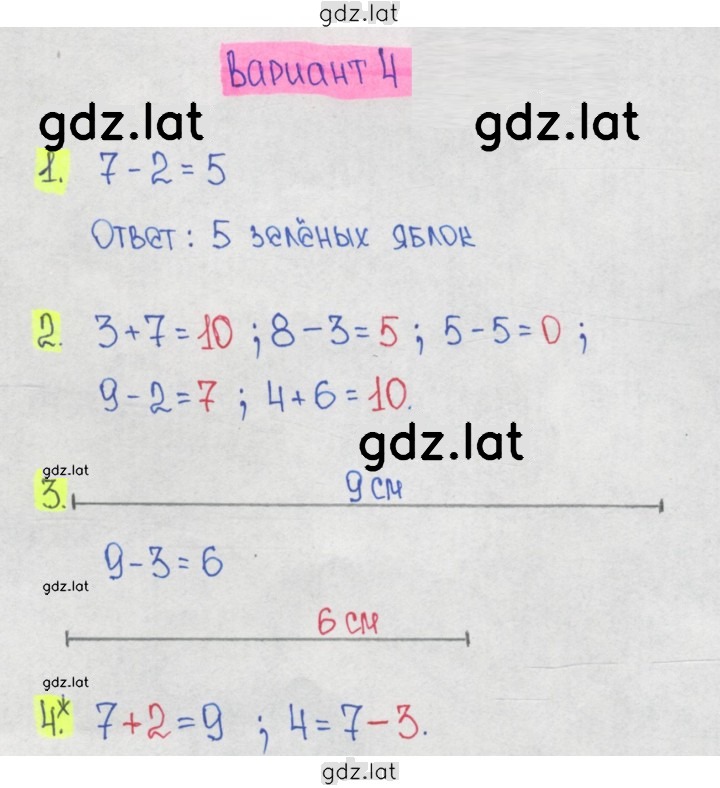 gdz.lat
Вариант 4
gdz.lat gdz.lat
1. 7 - 2 = 5
Ответ: 5 зелёных яблок
2. 3 + 7 = 10 ; 8 - 3 = 5 ; 5 - 5 = 0 ;
9 - 2 = 7 ; 4 + 6 = 10.
gdz.lat
gdz.lat
3. 9 см
9 - 3 = 6
gdz.lat
6 см
gdz.lat
4.* 7 + 2 = 9 ; 4 = 7 - 3.
gdz.lat